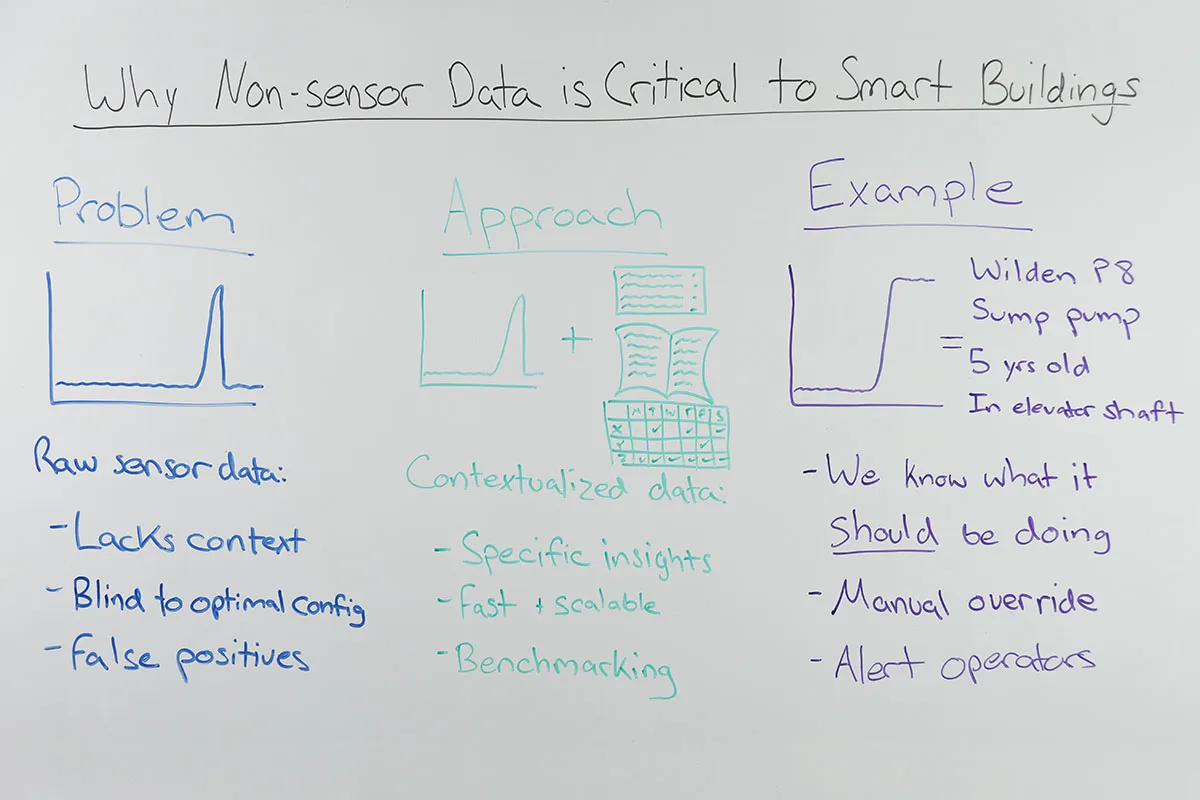 Why Non-sensor Data is Critical to Smart Buildings
Problem
Raw sensor data:
- Lacks context
- Blind to optimal config
- False positives
Approach
+
M T W T F S
X
Y
Z
Contextualized data:
- Specific insights
- Fast + scalable
- Benchmarking
Example
= Wilden P8
Sump pump
5 yrs old
In elevator shaft
- We know what it
should be doing
- Manual override
- Alert operators